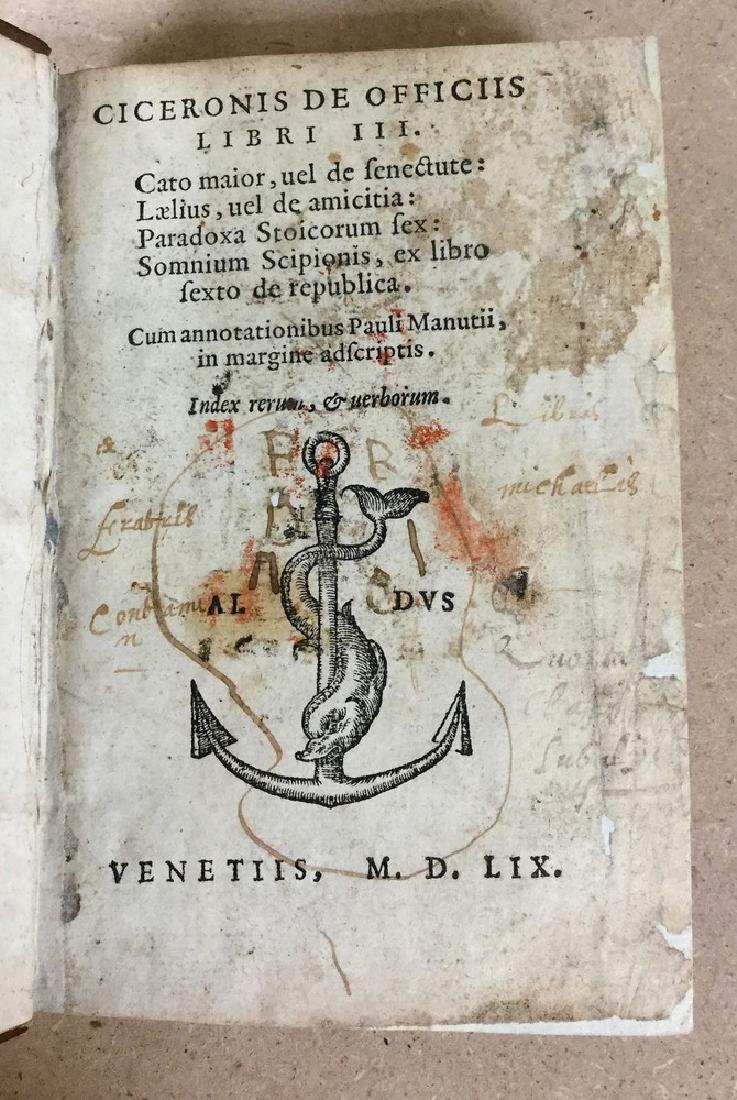 CICERONIS DE OFFICIIS
LIBRI III.
Cato maior, uel de ſenectute:
Lælius, uel de amicitia:
Paradoxa Stoicorum ſex:
Somnium Scipionis, ex libro
ſexto de republica.
Cum annotationibus Pauli Manutii,
in margine adſcriptis.
Index rerum, & uerborum.
Libris
michaelis
AL DVS
VENETIIS, M. D. LIX.